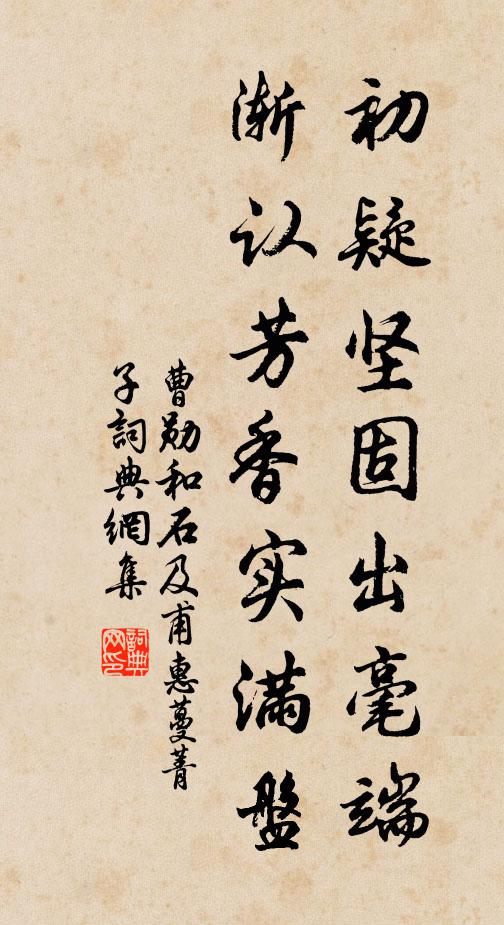 初疑坚固出毫端
渐认芳香实满盘
曹勋和石及甫惠蔓菁
子词典網集
詞典
网印